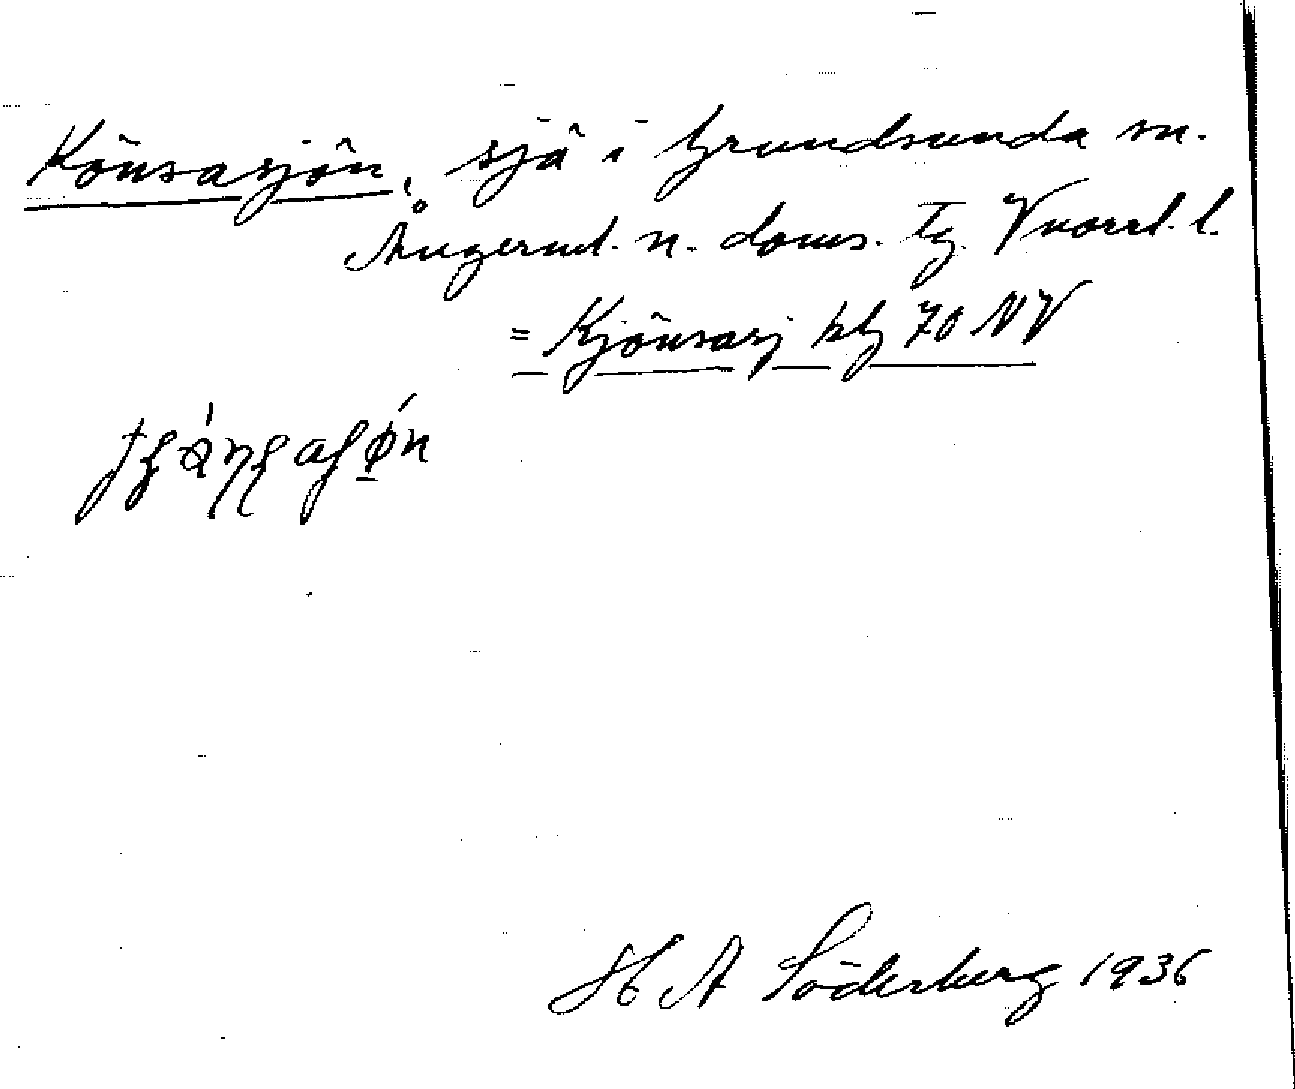 Könsasjön, sjö i Grundsunda sn.
Ångerml. n. doms. Tg. Vnorrl. l.
= Kjönsasj kbl 70 NV
H A Söderberg 1936